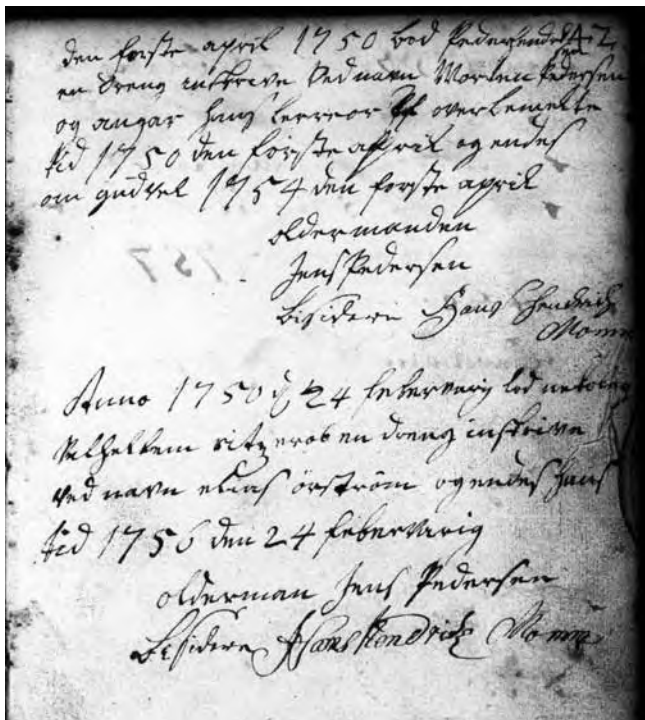 den förste april 1750 lod Peder
en dreng inskrive ved navn Morten Pedersen
og angår hans lerreor overbemelte
tid 1750 den förste april og endes
om gud vel 1754 den förste april
oldermanden
Jens Pedersen
bisidere Hans Hendrich
Momme
Anno 1750 d 24 febervarig lod
Velhellem ritzerob en dreng inskrive
ved navn elias örström og endes hans
tid 1756 den 24 febervarig
olderman Jens Pedersen
bisidere Hans Hendrich Momme